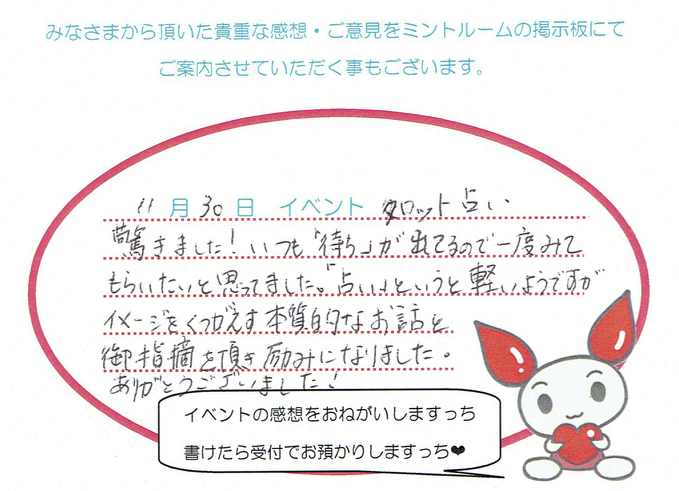 みなさまから頂いた貴重な感想・ご意見をミントルームの掲示板にて
ご案内させていただく事もございます。
11月30日 イベント タロット占い
驚きました!いつも「待ち」が出てるので一度みて
もらいたいと思ってました。「占い」というと軽いようですが
イメージをくつがえす本質的なお話と
御指摘を頂き励みになりました。
ありがとうございました!
イベントの感想をおねがいしますっち
書けたら受付でお預かりしますっち❤